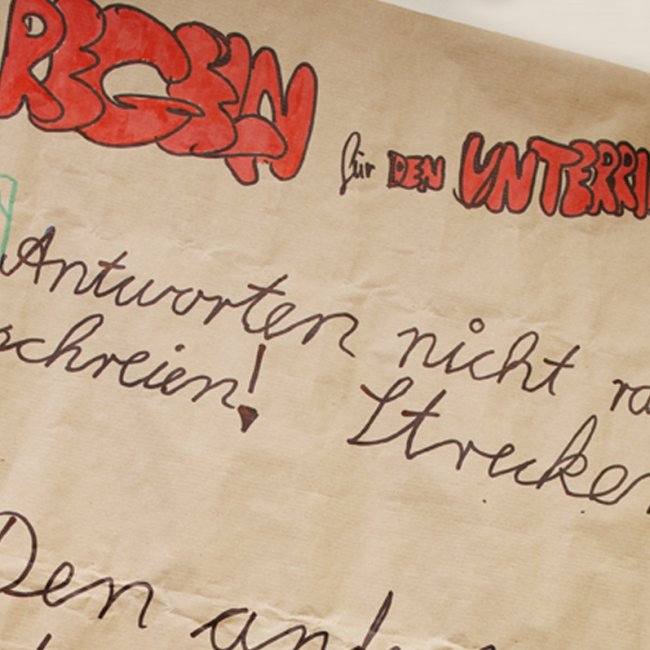 REGELN für DEN UNTERRI
Antworten nicht ra
schreien! Strecken
Den and